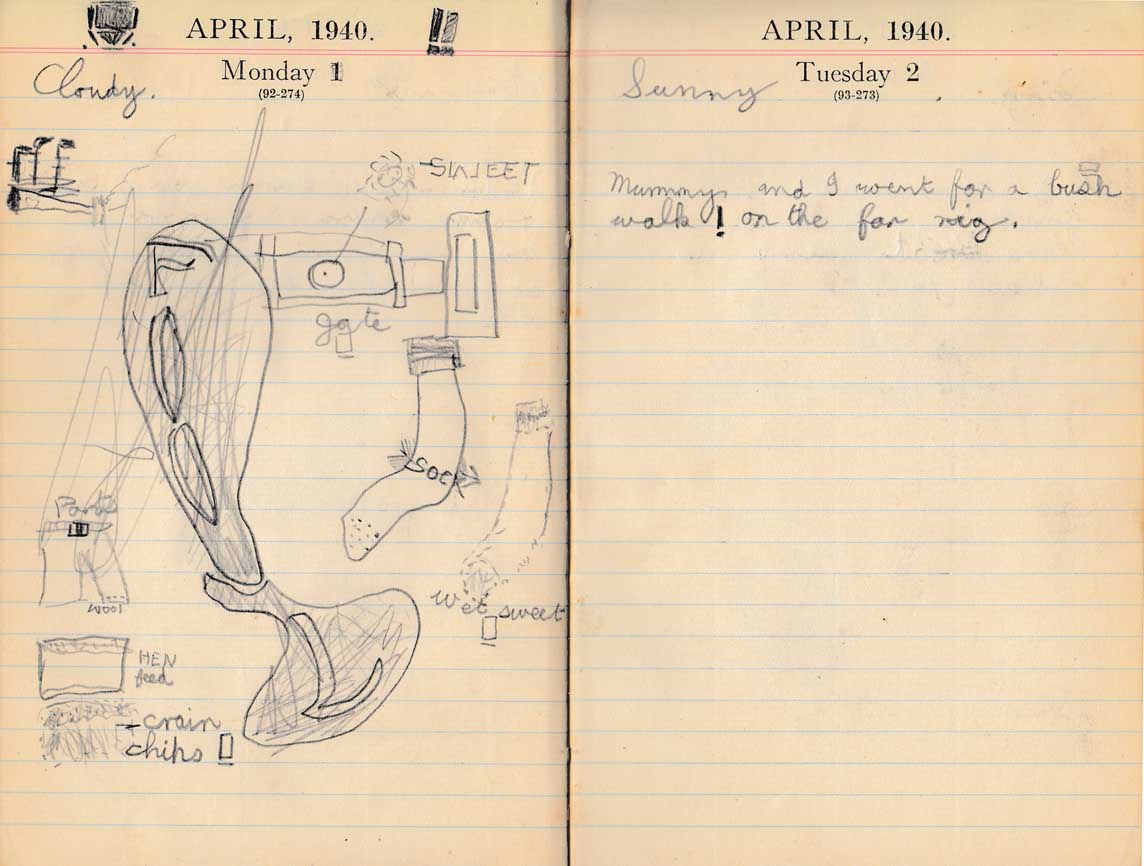 APRIL, 1940.
Monday 1
(92-274)
Cloudy.
SWEET
gate
sock
Pants
wool
wet sweet
HEN
feed
crain
chips
APRIL, 1940.
Tuesday 2
(93-273)
Sunny
Mummy and I went for a bush
walk ! on the far rig.